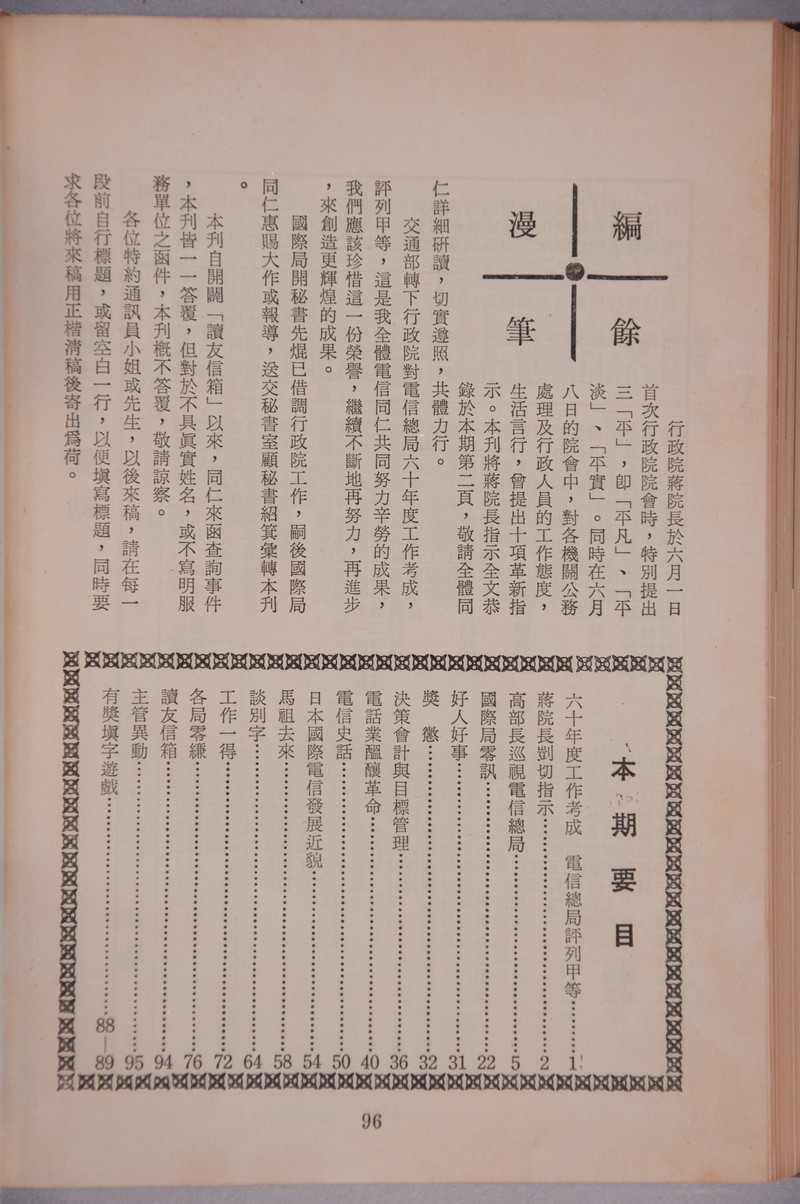 編餘
漫筆
行政院蔣院長於六月一日
首次行政院院會時，特別提出
三「平」，卽「平凡」、「平
淡」、「平實」。同時在六月
八日的院會中，對各機關公務
處理及行政人員的工作態度，
生活言行，曾提出十項革新指
示。本刊將蔣院長指示全文恭
錄於本期第二頁，敬請全體同
仁詳細硏讀，切實遵照，共體力行。
交通部轉下行政院對電信總局六十年度工作考成，
評列甲等，這是我全體電信同仁共同努力辛勞的成果，
我們應該珍惜這一份榮譽，繼續不斷地再努力，再進步
，來創造更輝煌的成果。
國際局開秘書先焜已借調行政院工作，嗣後國際局
同仁惠賜大作或報導，送交秘書室顧秘書紹箕彙轉本刊
。
本刊自開闢「讀友信箱」以來，同仁來函查詢事件
，本刊皆一一答覆，但對於不具眞實姓名，或不寫明服
務單位之函件，本刊槪不答覆，敬請諒察。
各位特約通訊員小姐或先生，以後來稿，請在每一
段前自行標題，或留空白一行，以便塡寫標題，同時要
求各位將來稿用正楷淸稿後寄出爲荷。
本期要目
六十年度工作考成　電信總局評列甲等…………1
蔣院長剴切指示…………2
高部長巡視電信總局…………5
國際局零訊…………22
好人好事…………31
獎　懲…………32
決策會計與目標管理…………36
電話業醞釀革命…………40
電信史話…………50
日本國際電信發展近貌…………54
馬祖去來…………58
談別字…………64
工作一得…………72
各局零縑…………76
讀友信箱…………94
主管異動…………95
有獎塡字遊戲…………88—89
96